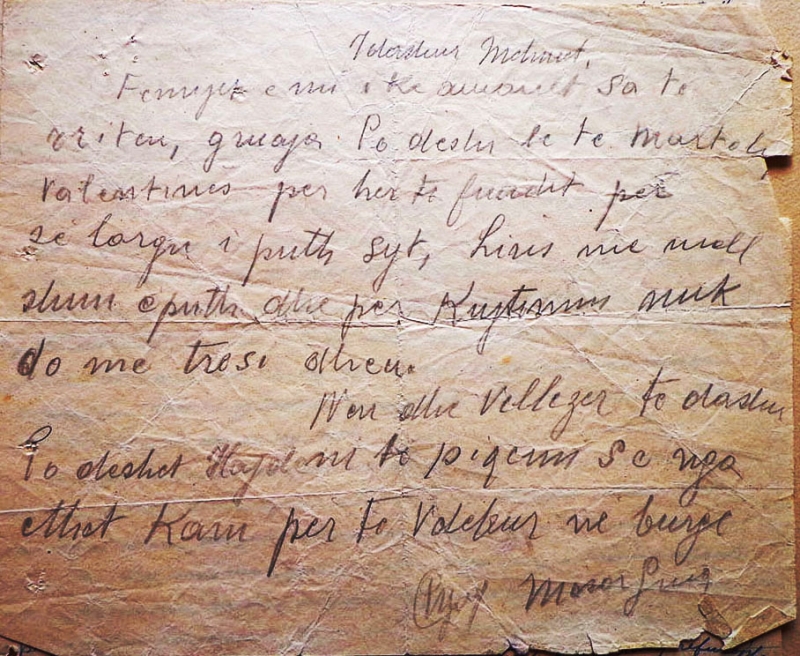 I dashur Mehmet,
Femijet e mi i ke amanet sa te
rriten, gruaja. Po deshi le te martoh
Valentines per her te fundit per
së largu i puth syt, Liris me mall
shum e puth dhe per Kujtimin nuk
do me tresi dheu.
Nen dhe Vellezer te dashu
Po deshet Hajdeni te piqemi se nga
ethet Kam per te Vdekur ne burge